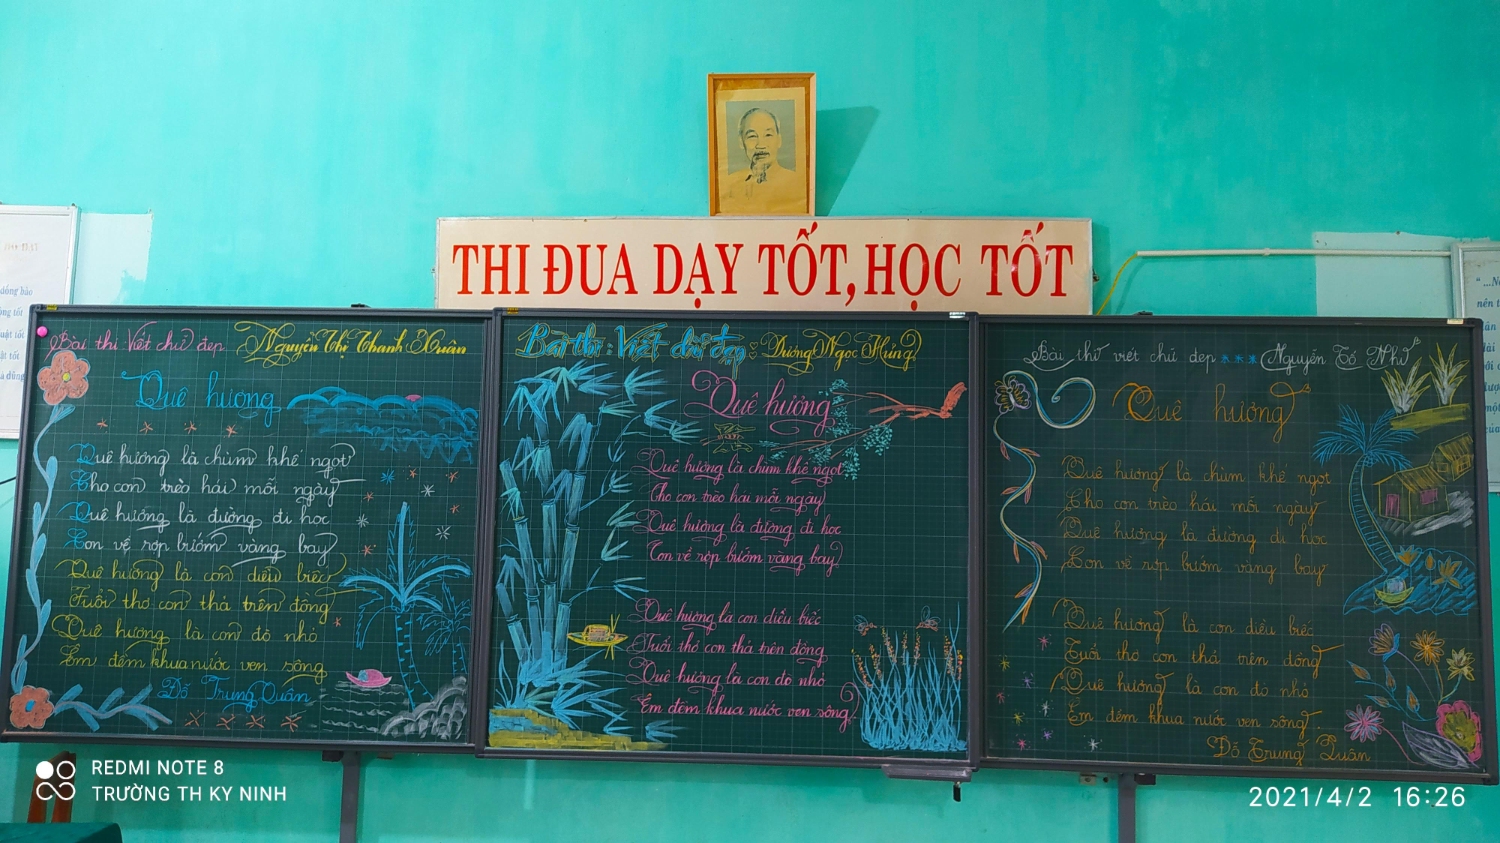 THI ĐUA DẠY TỐT, HỌC TỐT
Bài thi Viết chữ đẹp Nguyễn Thị Thanh Xuân
Quê hương
Quê hương là chùm khế ngọt
Cho con trèo hái mỗi ngày
Quê hương là đường đi học
Con về rợp bướm vàng bay
Quê hương là con diều biếc
Tuổi thơ con thả trên đồng
Quê hương là con đò nhỏ
Êm đềm khua nước ven sông
Đỗ Trung Quân
Bài thi: Viết chữ đẹp: Dương Ngọc Hưng
Quê hương
Quê hương là chùm khế ngọt
Cho con trèo hái mỗi ngày
Quê hương là đường đi học
Con về rợp bướm vàng bay
Quê hương là con diều biếc
Tuổi thơ con thả trên đồng
Quê hương là con đò nhỏ
Êm đềm khua nước ven sông
Bài thi viết chữ đẹp *** Nguyễn Tố Như
Quê hương
Quê hương là chùm khế ngọt
Cho con trèo hái mỗi ngày
Quê hương là đường đi học
Con về rợp bướm vàng bay
Quê hương là con diều biếc
Tuổi thơ con thả trên đồng
Quê hương là con đò nhỏ
Êm đềm khua nước ven sông
Đỗ Trung Quân
REDMI NOTE 8
TRƯỜNG TH KY NINH
2021/4/2 16:26